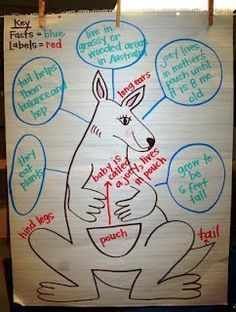 Key
Facts = blue
Labels = red
live in
grassy or
wooded areas
in Australia
tail helps
them
balance and
hop
long ears
joey lives
in mother's
pouch until
it is 8 mo.
old
they eat
plants
baby is
called
a joey, lives
in pouch
grow to
be
6 feet
tall
hind legs
pouch
tail